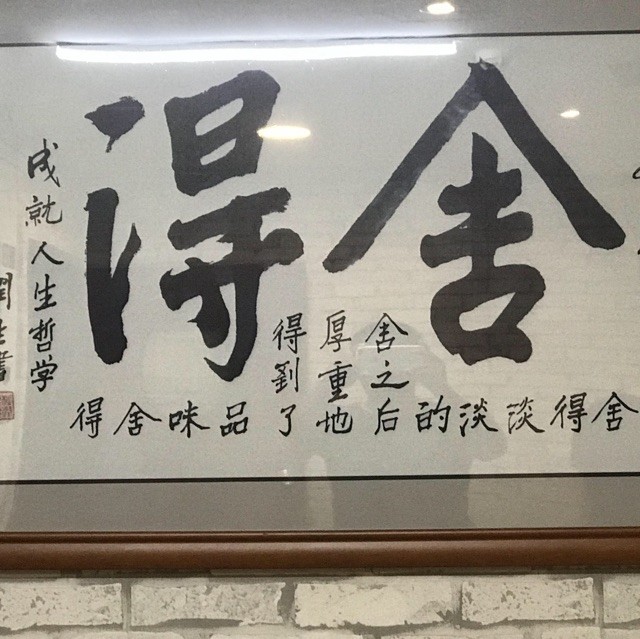 舍得
舍得淡淡的
舍之后
厚重地
得到了
品味舍得
成就人生哲学